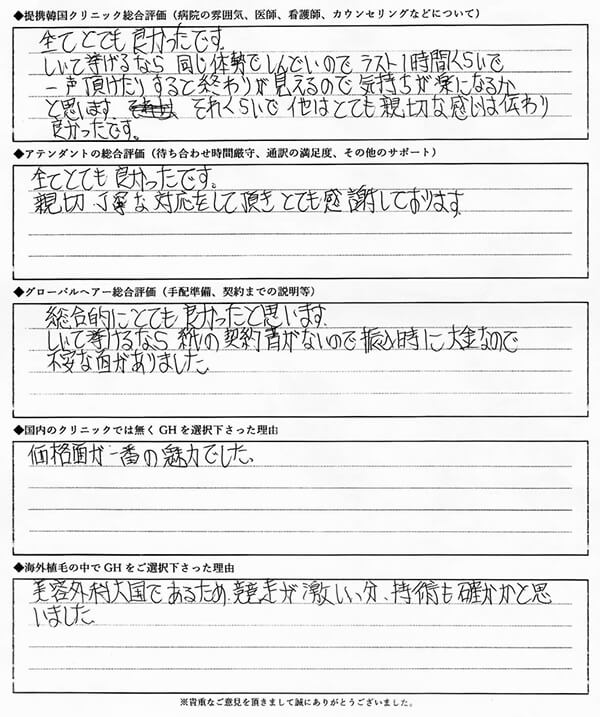 ◆提携韓国クリニック総合評価（病院の雰囲気、医師、看護師、カウンセリングなどについて）
全てとても良かったです。
しいて挙げるなら 同じ体勢でしんどいので ラスト1時間くらいで
一声頂けたりすると終わりが見えるので気持ちが楽になるか
と思います それくらいで他はとても親切な感じは伝わり
良かったです。
◆アテンダントの総合評価（待ち合わせ時間厳守、通訳の満足度、その他のサポート）
全てとても良かったです。
親切 丁寧な対応をして頂き とても感謝しております
◆グローバルヘアー総合評価（手配準備、契約までの説明等）
総合的にとても良かったと思います
しいて挙げるなら 紙の契約書がないので振込時に大金なので
不安な面がありました
◆国内のクリニックでは無く GH を選択下さった理由
価格面が一番の魅力でした、
◆海外植毛の中で GH をご選択下さった理由
美容外科大国であるため 競走が激しい分、持術も確かかと思
いました
※貴重なご意見を頂きまして誠にありがとうございました。